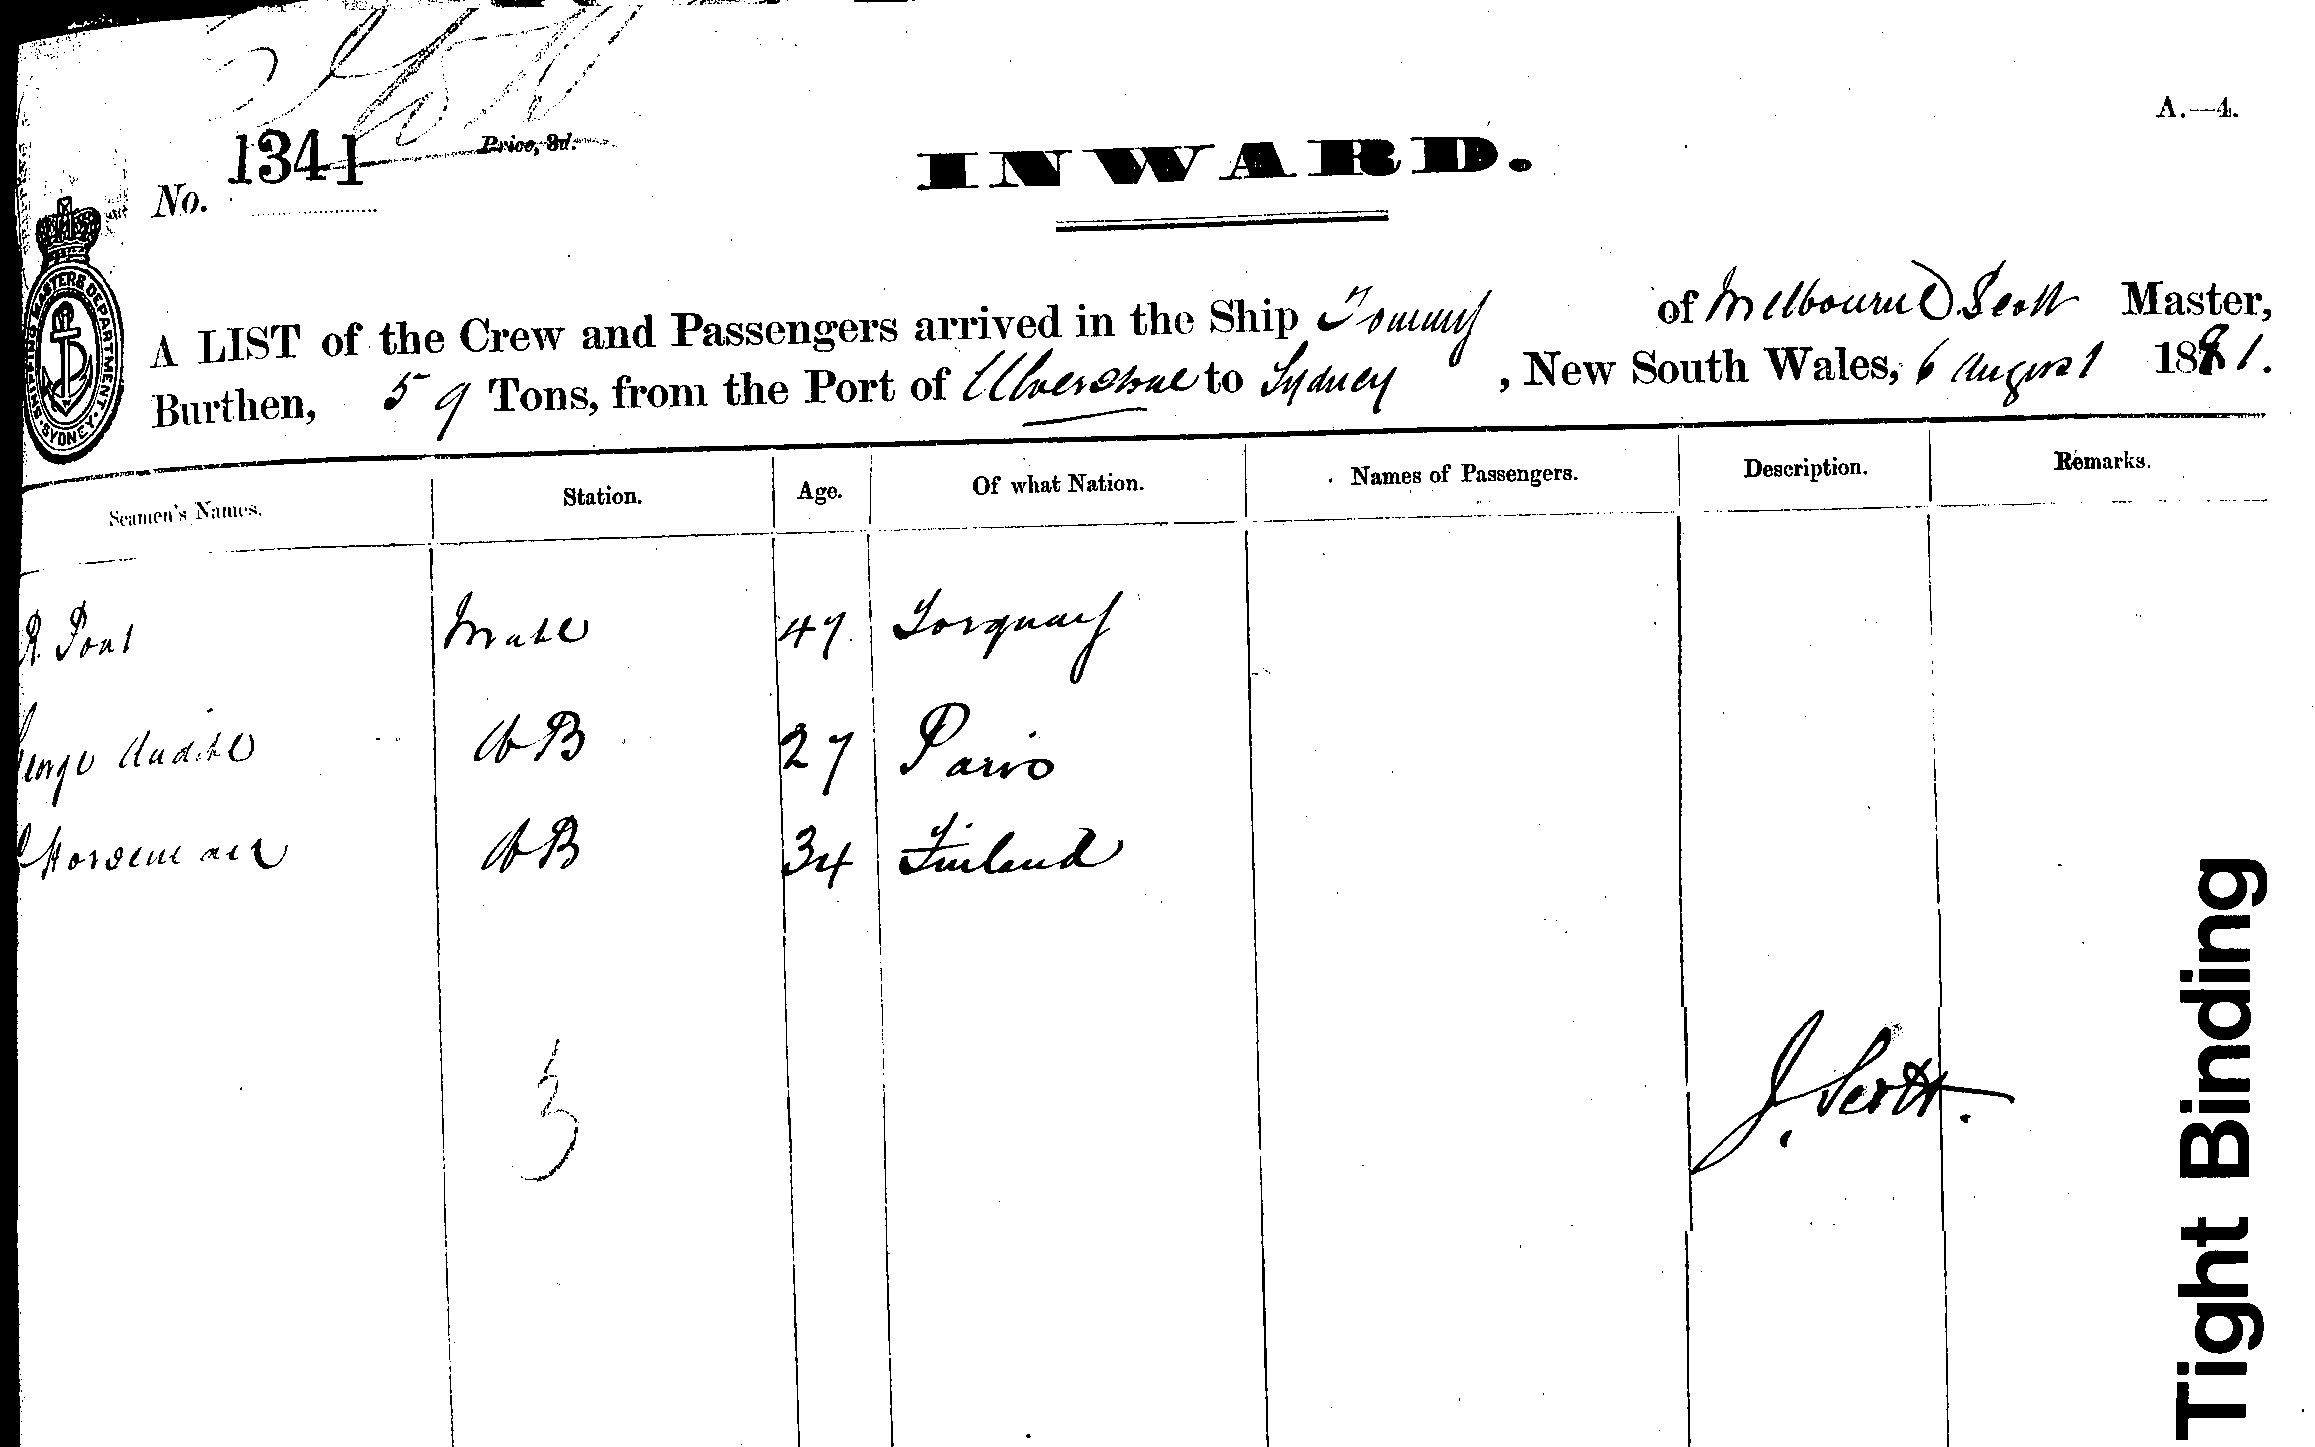 A.—4.
No. 1341 Price, 3d.
INWARD.
SHIPPING MASTERS DEPARTMENT. SYDNEY.
A LIST of the Crew and Passengers arrived in the Ship Tommy of Melbourne Scott Master,
Burthen, 59 Tons, from the Port of Ulverstone to Sydney, New South Wales, 6 August 1881.
Seamen's Names. Station. Age. Of what Nation. Names of Passengers. Description. Remarks.
R. Mate 47 Torquay
George AB 27 Paris
AB 34 Finland
3
J. Scott.
Tight Binding